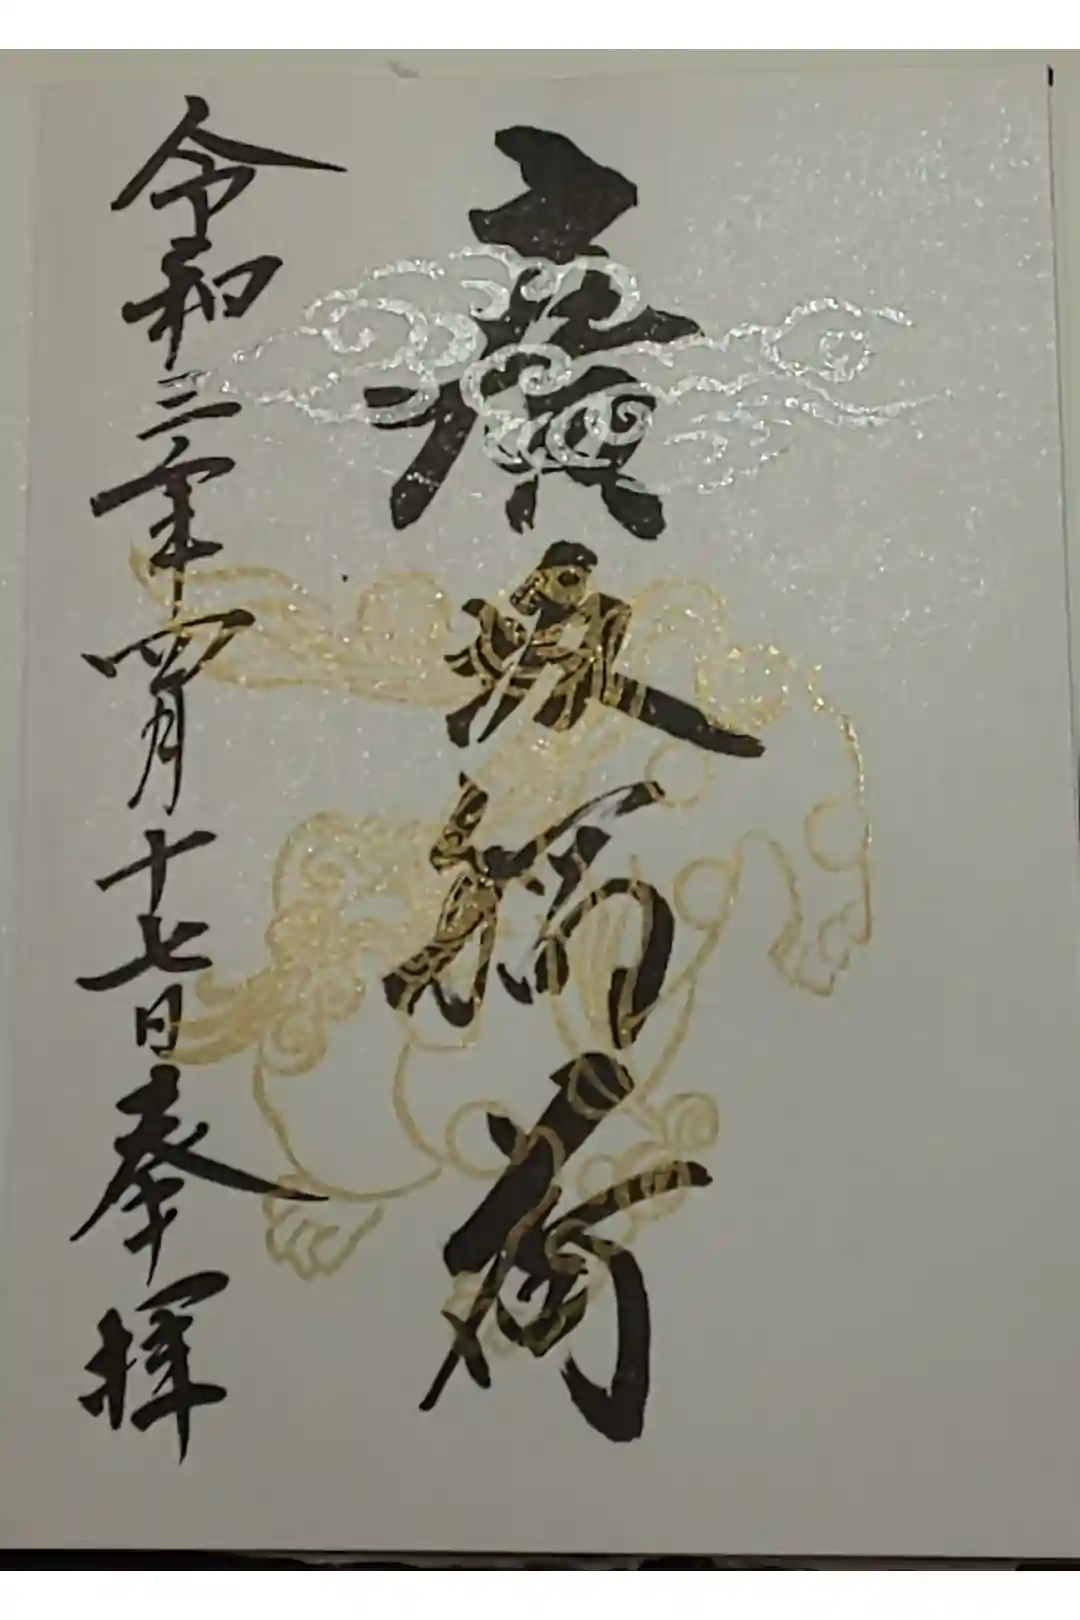 廣稲荷
令和三年四月十七日奉拝